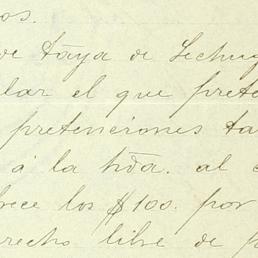 os.
de taya de Lechug
lar el que prete
pretenciones ta
á la hda. al c
rece los $100. por
recho libre de p